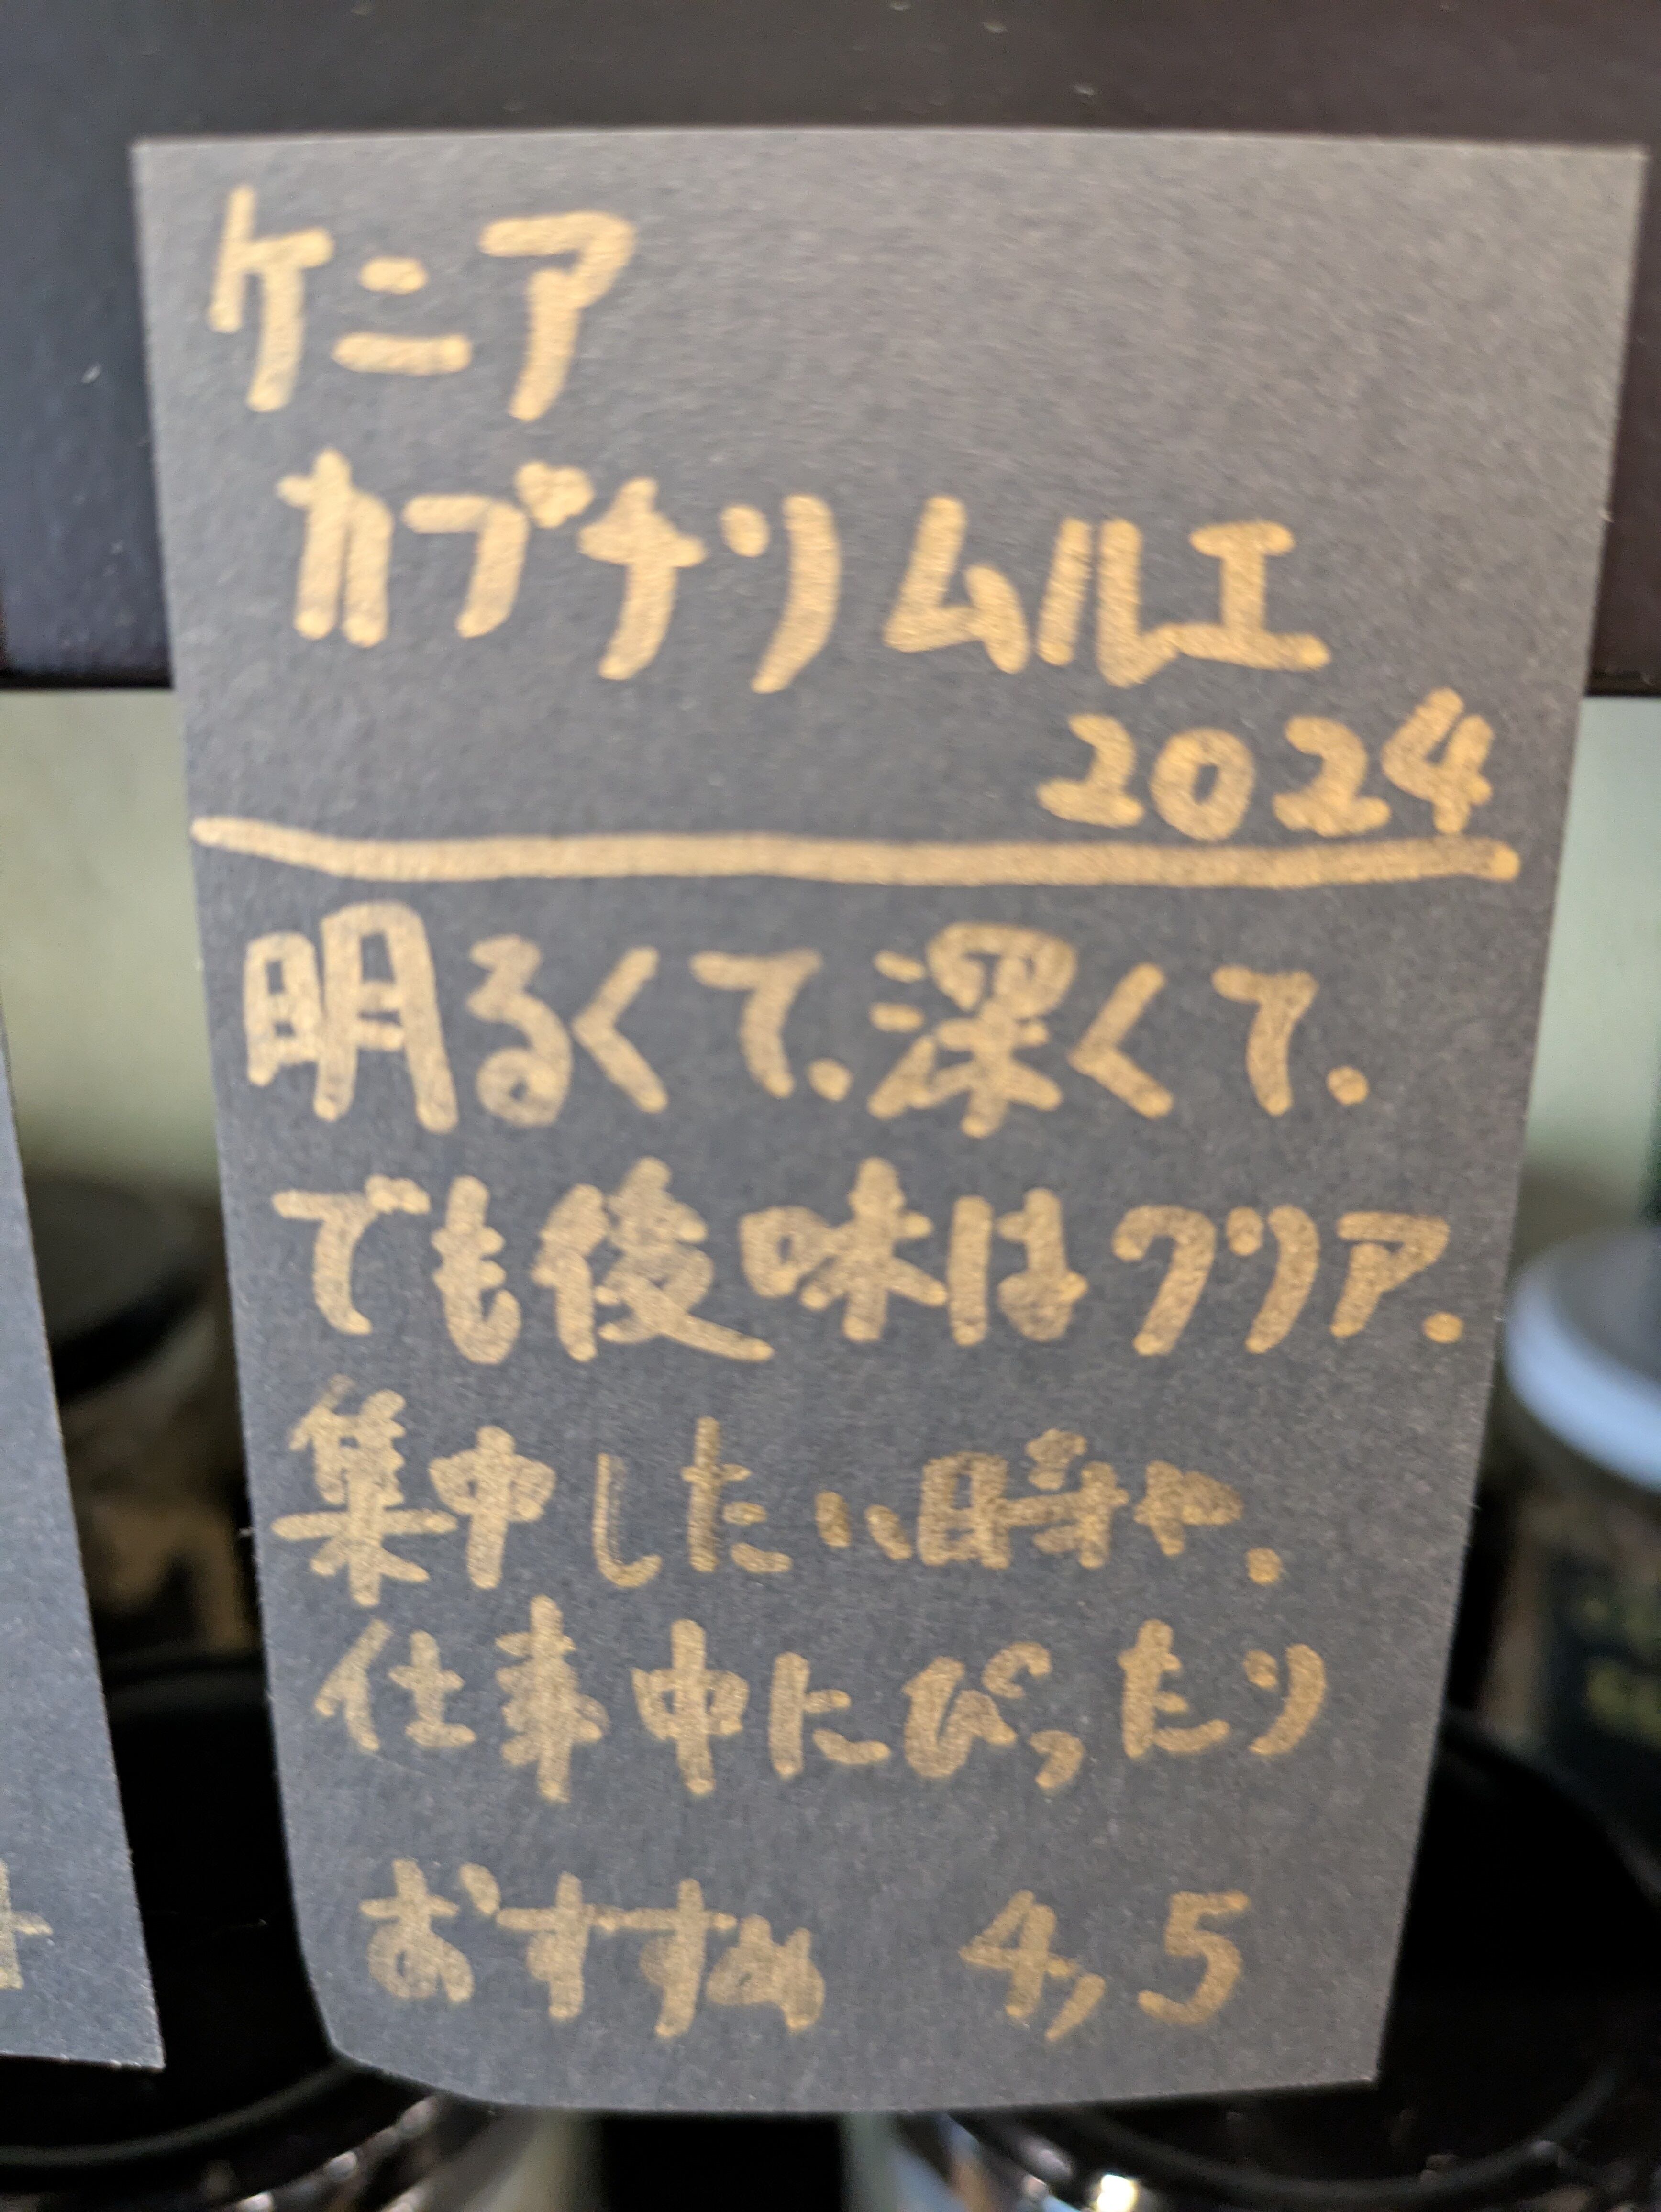 ケニア
カブナリ ムルエ
2024
明るくて、深くて、
でも後味はクリア。
集中したい時や、
仕事中にぴったり
おすすめ 4,5